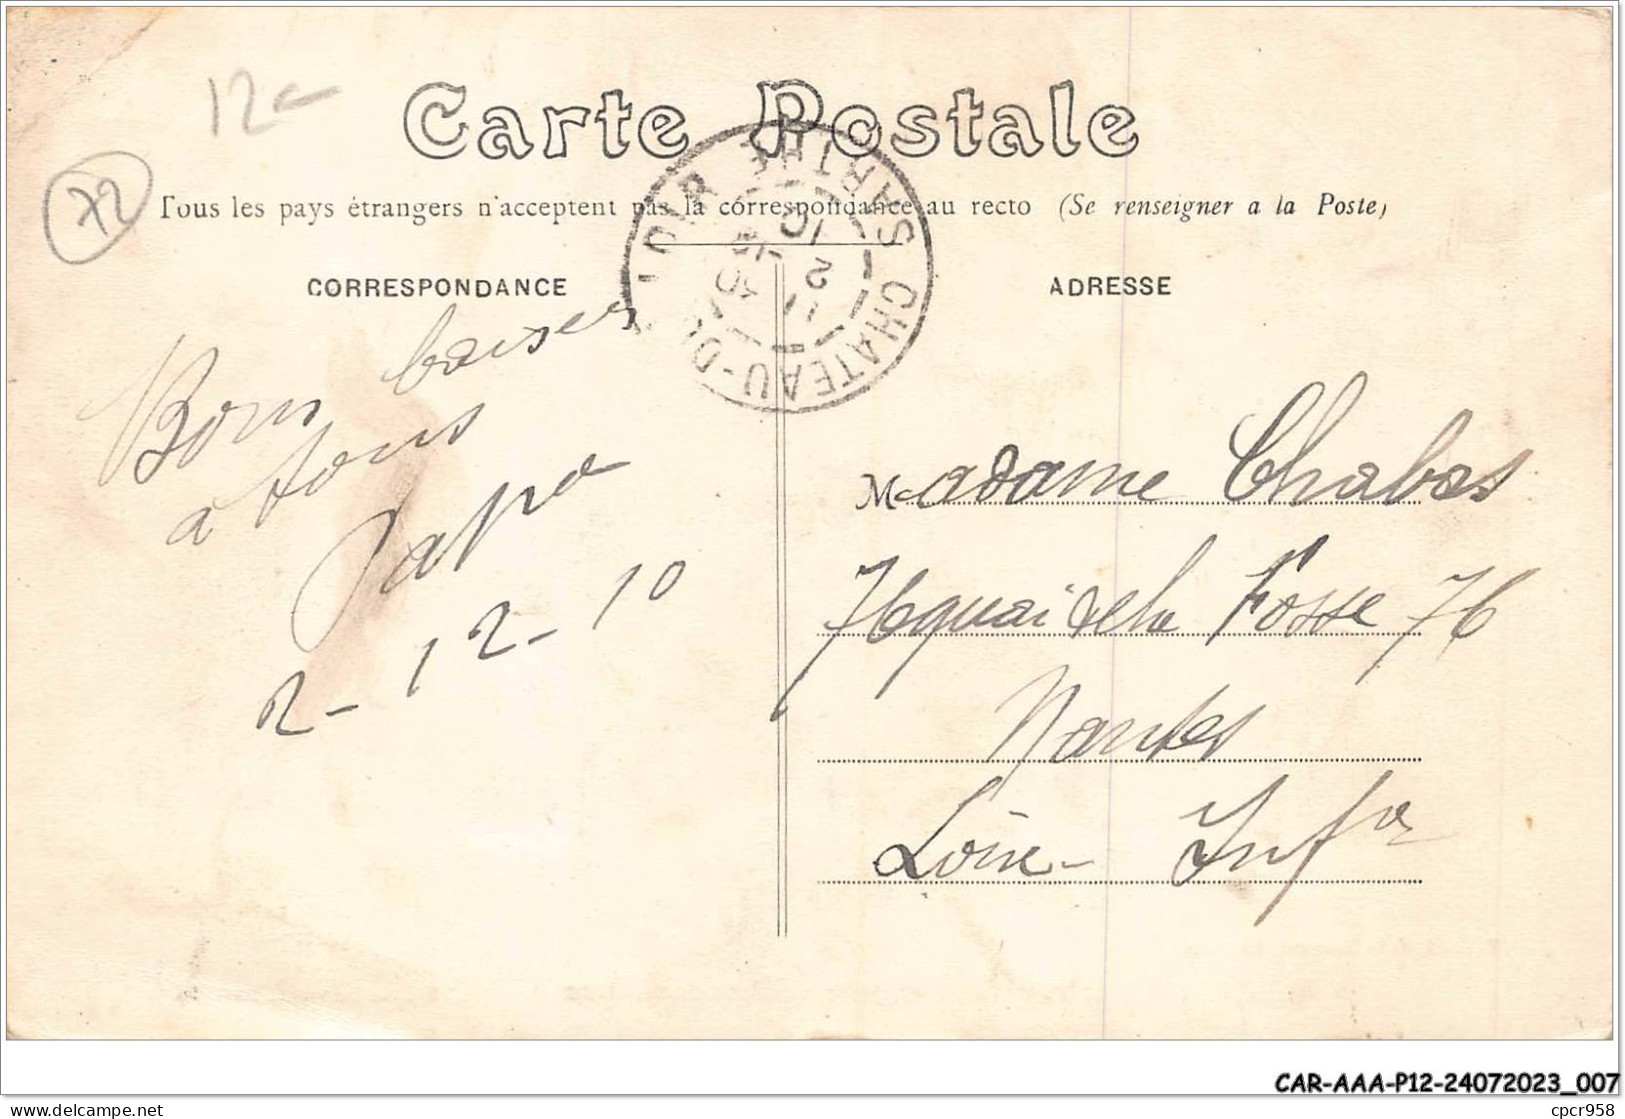 12€
72
Carte Postale
Tous les pays étrangers n'acceptent pas la correspondance au recto (Se renseigner a la Poste)
CHATEAU-DU-LOIR SARTHE
2 -12
10
CORRESPONDANCE
Bons baisers
à tous
Papa
2-12-10
ADRESSE
Madame Chabas
76 quai de la Fosse 76
Nantes
Loire-Infre
CAR-AAA-P12-24072023_007
delcampe.net
cpcr958